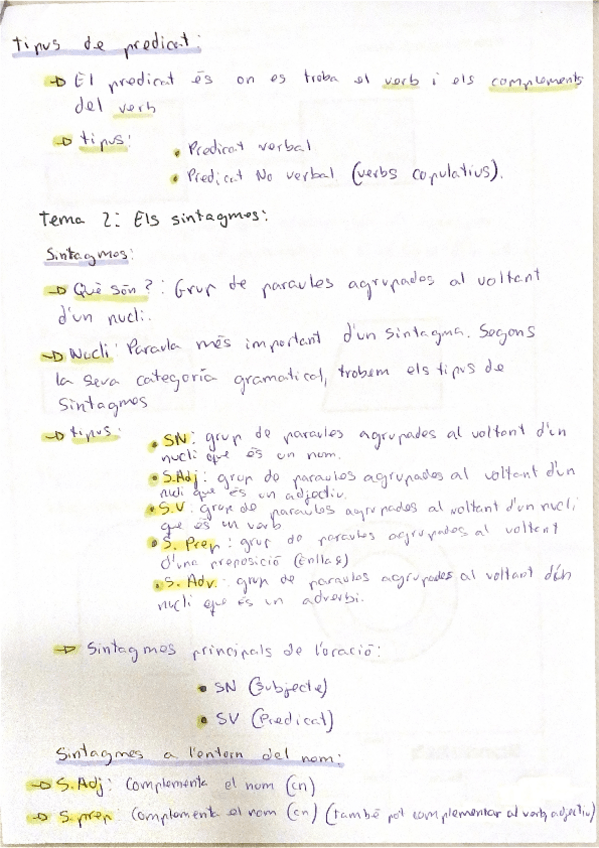 tipus de predicat:
→ El predicat és on es troba el verb i els complements
del verb
→ tipus:
• Predicat verbal
• Predicat No verbal (verbs copulatius).
Tema 2: Els sintagmes:
Sintagmes:
→ Què són?: Grup de paraules agrupades al voltant
d'un nucli.
→ Nucli: Paraula més important d'un sintagma. Segons
la seva categoría gramatical, trobem els tipus de
sintagmes
→ tipus:
• SN: grup de paraules agrupades al voltant d'un
nucli que és un nom.
• S.Adj: grup de paraules agrupades al voltant d'un
nucli que és un adjectiu.
• S.V: grup de paraules agrupades al voltant d'un nucli
que és un verb
• S. Prep: grup de paraules agrupades al voltant
d'una preposició (Enllaç)
• S. Adv.: grup de paraules agrupades al voltant d'un
nucli que és un adverbi.
→ Sintagmes principals de l'oració:
• SN (Subjecte)
• SV (Predicat)
Sintagmes a l'entorn del nom:
→ S.Adj: Complementa el nom (cn)
→ S.prep: Complementa el nom (cn) (també pot complementar al verb, adjectiu)